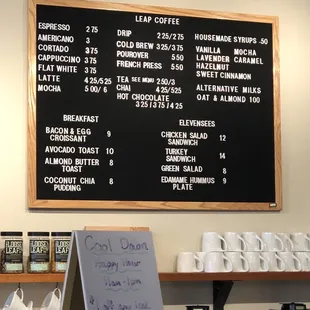 LEAP COFFEE
ESPRESSO 2.75
AMERICANO 3
CORTADO 3.75
CAPPUCCINO 3.75
FLAT WHITE 3.75
LATTE 4.25/5.25
MOCHA 5.00/6
DRIP 2.25/2.75
COLD BREW 3.25/3.75
POUROVER 5.50
FRENCH PRESS 5.50
TEA SEE MENU 2.50/3
CHAI 4.25/5.25
HOT CHOCOLATE
3.25/4.25
HOUSEMADE SYRUPS .50
VANILLA MOCHA
LAVENDER CARAMEL
HAZELNUT
SWEET CINNAMON
ALTERNATIVE MILKS
OAT & ALMOND 1.00
BREAKFAST
BACON & EGG 9
CROISSANT
AVOCADO TOAST 10
ALMOND BUTTER 8
TOAST
COCONUT CHIA 8
PUDDING
ELEVENSEES
CHICKEN SALAD 12
SANDWICH
TURKEY 14
SANDWICH
GREEN SALAD 8
EDAMAME HUMMUS 9
PLATE
LOOSE
LEAF
LOOSE
LEAF
LOOSE
LEAF
Cool Down
Happy Hour